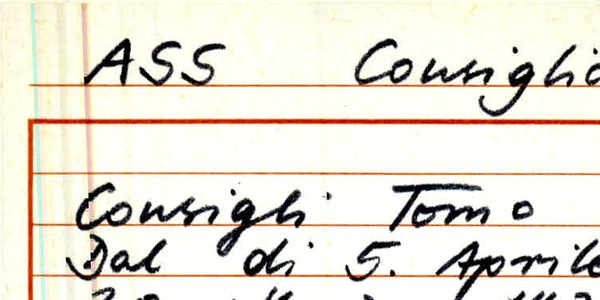 ASS Consiglio
Consigli Tomo
Dal di 5. Aprile